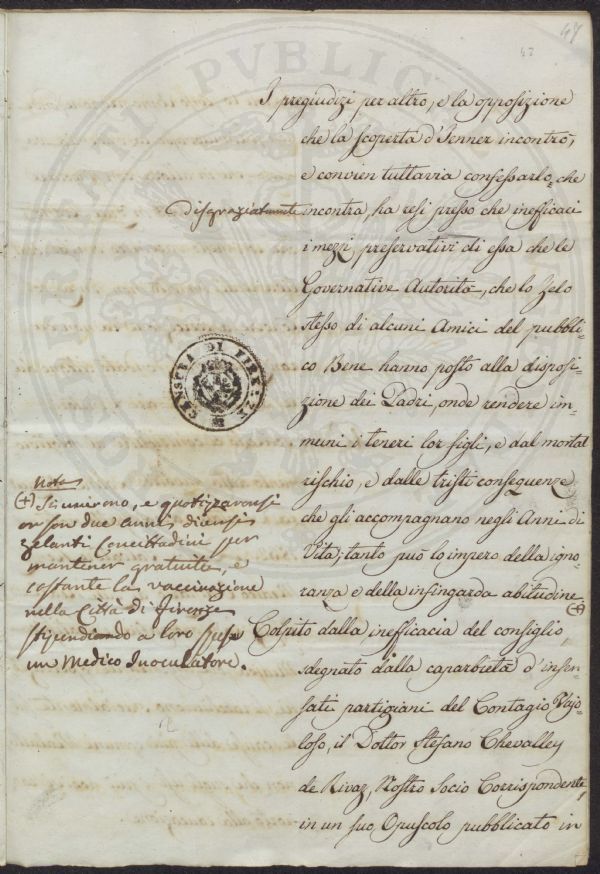 47
43
I pregiudizi per altro, e la opposizione
che la scoperta d'Jenner incontrò,
e convien tuttavia confessarlo, che
disgraziatamente incontra, ha resi presso che inefficaci
i mezzi preservativi di essa che le
Governative Autorità, che lo zelo
stesso di alcuni Amici del pubbli-
co Bene hanno posto alla disposi-
zione dei Padri, onde rendere im-
muni i teneri lor figli, e dal mortal
rischio, e dalle tristi conseguenze
che gli accompagnano negli Anni di
Vita; tanto può lo impero della igno-
ranza e della infingarda abitudine.
(+)
Colpito dalla inefficacia del consiglio,
sdegnato dalla caparbietà d'insen-
sati partigiani del Contagio Vajo-
loso, il Dottor Stefano Chevalley
de Rivaz, Nostro Socio Corrispondente,
in un suo Opuscolo pubblicato in
Nota
(+) Si unirono, e quotizzaronsi
or son due anni diversi
zelanti Concittadini per
mantener gratuita, e
costante la vaccinazione
nella Città di Firenze
stipendiando a loro spese
un Medico Inoculatore.
CENSURA DI FIRENZE